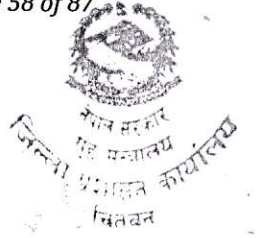 58 of 87
नेपाल सरकार
गृह मन्त्रालय
जिल्ला प्रशासन कार्यालय
चितवन